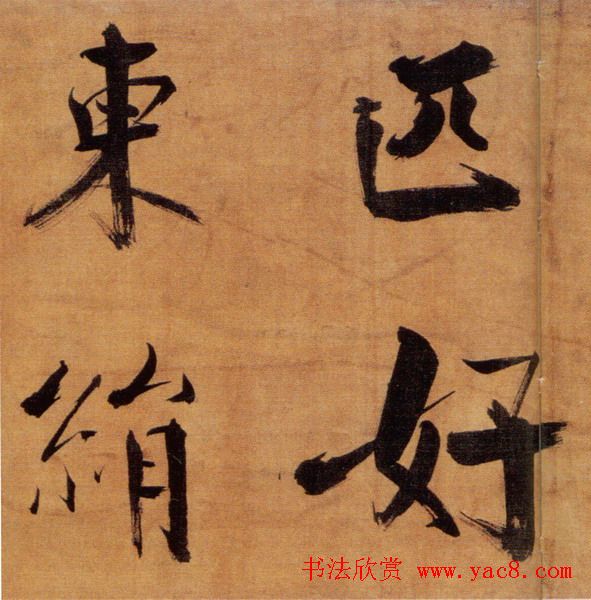 匹好
東絹
书法欣赏 www.yac8.com